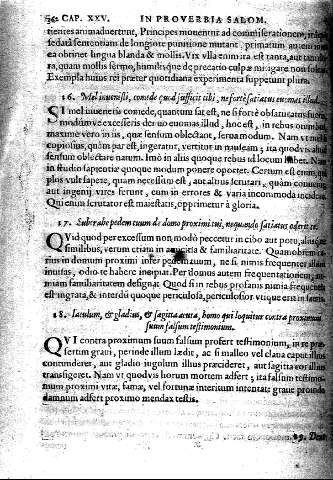 CAP. XXV. IN PROVERBIA SALOM.
tientes animadvertunt, Principes moventur ad commiserationem,
sedatâ sententiam de longiore punitione mutant, primatum autem in
ea obtinet lingua blanda & mollis. Vix ulla enim ira est tanta, aut tam
ra, quam mollis sermo, humilisque de peccato culpæ non frangat.
Exempla huius rei præter quotidiana experimenta suppetunt plura.
16. Mel invenisti, comede quod sufficit tibi, ne fortè satiatus evomas illud.
SI mel inveneris comede, quantum sat est, ne si fortè obsaturatus fueris,
modumve excesseris denuo evomas illud, hoc est, in rebus omnibus
maximè vero in iis, quæ sensum oblectant, serva modum. Nam ut mel
copiosius, quàm par est, ingeratur, vertitur in nauseam; ita quod
sensum oblectare natum. Imò in aliis quoque rebus id locum habet. Nam
in studio sapientiæ quoque modum ponere oportet. Certum est enim,
plus vult sapere, quàm necessum est, aut altius scrutari, quàm
aut ingenij vires ferunt, eum in errores & varia incommoda incidere.
Qui enim scrutator est maiestatis, opprimetur à gloria.
17. Subtrahe pedem tuum de domo proximi tui, nequando satiatus oderit te.
QUidquod per excessum non modò peccetur in cibo aut potu, aliisque
similibus, verum etiam in amicitia & familiaritate. Quamobrem
rius in domum proximi infer pedem tuum, ne si nimis frequenter illum
invisas, odio te habere incipiat. Per domus autem frequentationem,
miam familiaritatem designat. Quod si in rebus profanis nimia frequentia
est ingrata, & interdu quoque periculosa, periculosior utique erit in
18. Iaculum, & gladius, & sagitta acuta, homo qui loquitur contra proximum
suum falsum testimonium.
QVI contra proximum suum falsum profert testimonium, in re præ-
sertim gravi, perinde illum lædit, ac si malleo vel clava caput illius
contunderet, aut gladio jugulum illius præcideret, aut sagitta cor illius
transfigeret. Nam ut quodvis horum mortem adfert; ita falsum testimo-
nium proximi vitæ, famæ, vel fortunæ interitum intentat: grave proinde
damnum adfert proximo mendax testis.
19. Dens